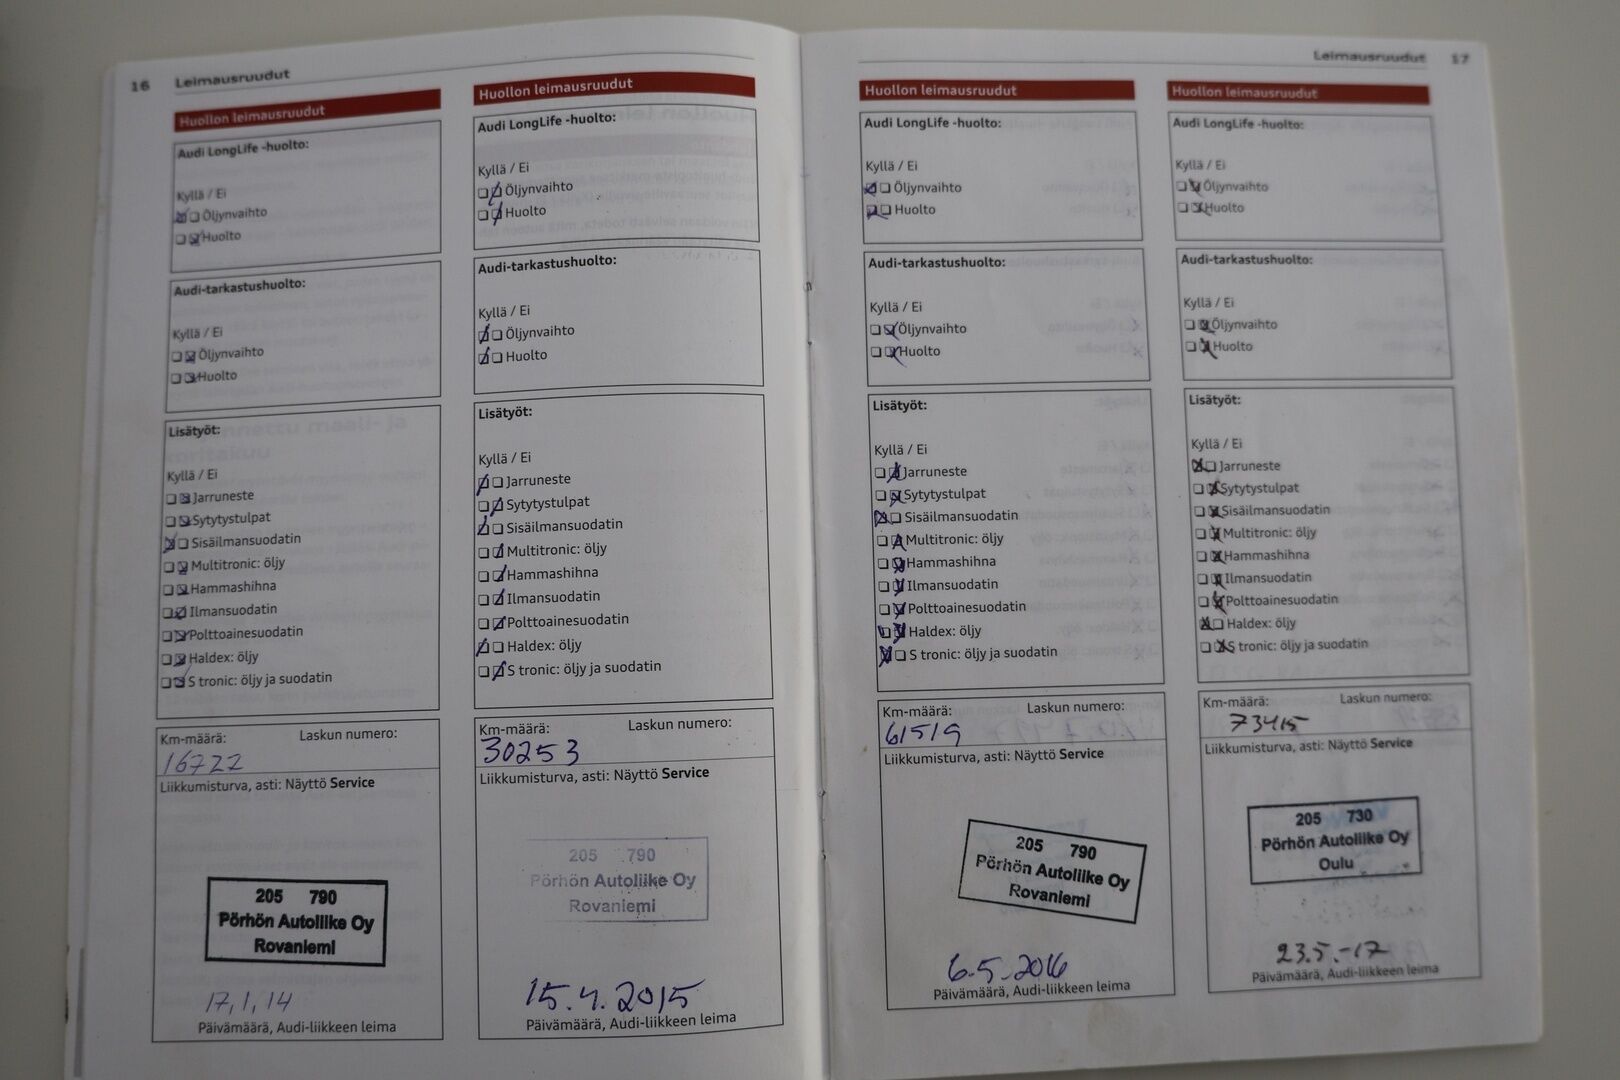 16 Leimausruudut
Huollon leimausruudut
Audi LongLife -huolto:
Kyllä / Ei
Öljynvaihto
Huolto
Audi-tarkastushuolto:
Kyllä / Ei
Öljynvaihto
Huolto
Lisätyöt:
Kyllä / Ei
Jarruneste
Sytytystulpat
Sisäilmansuodatin
Multitronic: öljy
Hammashihna
Ilmansuodatin
Polttoainesuodatin
Haldex: öljy
S tronic: öljy ja suodatin
Km-määrä: Laskun numero:
16722
Liikkumisturva, asti: Näyttö Service
205 790
Pörhön Autoliike Oy
Rovaniemi
17,1,14
Päivämäärä, Audi-liikkeen leima
Huollon leimausruudut
Audi LongLife -huolto:
Kyllä / Ei
Öljynvaihto
Huolto
Audi-tarkastushuolto:
Kyllä / Ei
Öljynvaihto
Huolto
Lisätyöt:
Kyllä / Ei
Jarruneste
Sytytystulpat
Sisäilmansuodatin
Multitronic: öljy
Hammashihna
Ilmansuodatin
Polttoainesuodatin
Haldex: öljy
S tronic: öljy ja suodatin
Km-määrä: Laskun numero:
30253
Liikkumisturva, asti: Näyttö Service
205 790
Pörhön Autoliike Oy
Rovaniemi
15.4.2015
Päivämäärä, Audi-liikkeen leima
Leimausruudut 17
Huollon leimausruudut
Audi LongLife -huolto:
Kyllä / Ei
Öljynvaihto
Huolto
Audi-tarkastushuolto:
Kyllä / Ei
Öljynvaihto
Huolto
Lisätyöt:
Kyllä / Ei
Jarruneste
Sytytystulpat
Sisäilmansuodatin
Multitronic: öljy
Hammashihna
Ilmansuodatin
Polttoainesuodatin
Haldex: öljy
S tronic: öljy ja suodatin
Km-määrä: Laskun numero:
61519
Liikkumisturva, asti: Näyttö Service
205 790
Pörhön Autoliike Oy
Rovaniemi
6.5.2016
Päivämäärä, Audi-liikkeen leima
Huollon leimausruudut
Audi LongLife -huolto:
Kyllä / Ei
Öljynvaihto
Huolto
Audi-tarkastushuolto:
Kyllä / Ei
Öljynvaihto
Huolto
Lisätyöt:
Kyllä / Ei
Jarruneste
Sytytystulpat
Sisäilmansuodatin
Multitronic: öljy
Hammashihna
Ilmansuodatin
Polttoainesuodatin
Haldex: öljy
S tronic: öljy ja suodatin
Km-määrä: Laskun numero:
73415
Liikkumisturva, asti: Näyttö Service
205 730
Pörhön Autoliike Oy
Oulu
23.5.-17
Päivämäärä, Audi-liikkeen leima